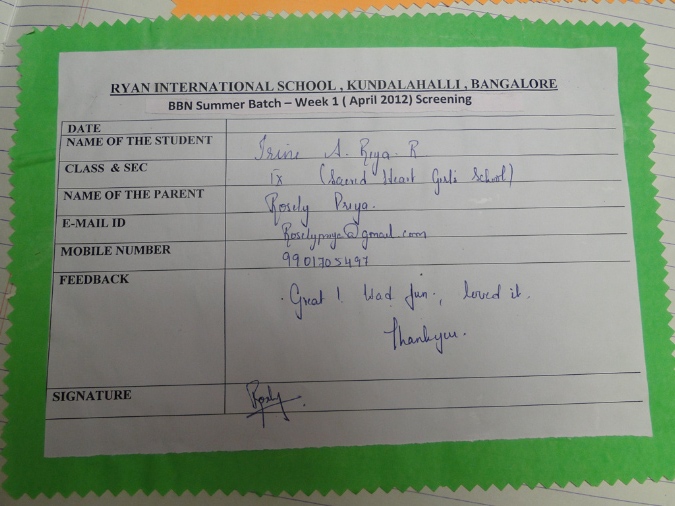 RYAN INTERNATIONAL SCHOOL , KUNDALAHALLI , BANGALORE
BBN Summer Batch – Week 1 ( April 2012) Screening
DATE
NAME OF THE STUDENT Irine A. Riya R
CLASS & SEC IX (Sacred Heart Girls School)
NAME OF THE PARENT Rosely Priya.
E-MAIL ID Roselypriya@gmail.com
MOBILE NUMBER 9901705497
FEEDBACK Great! Had fun., loved it.
Thankyou.
SIGNATURE Rosely